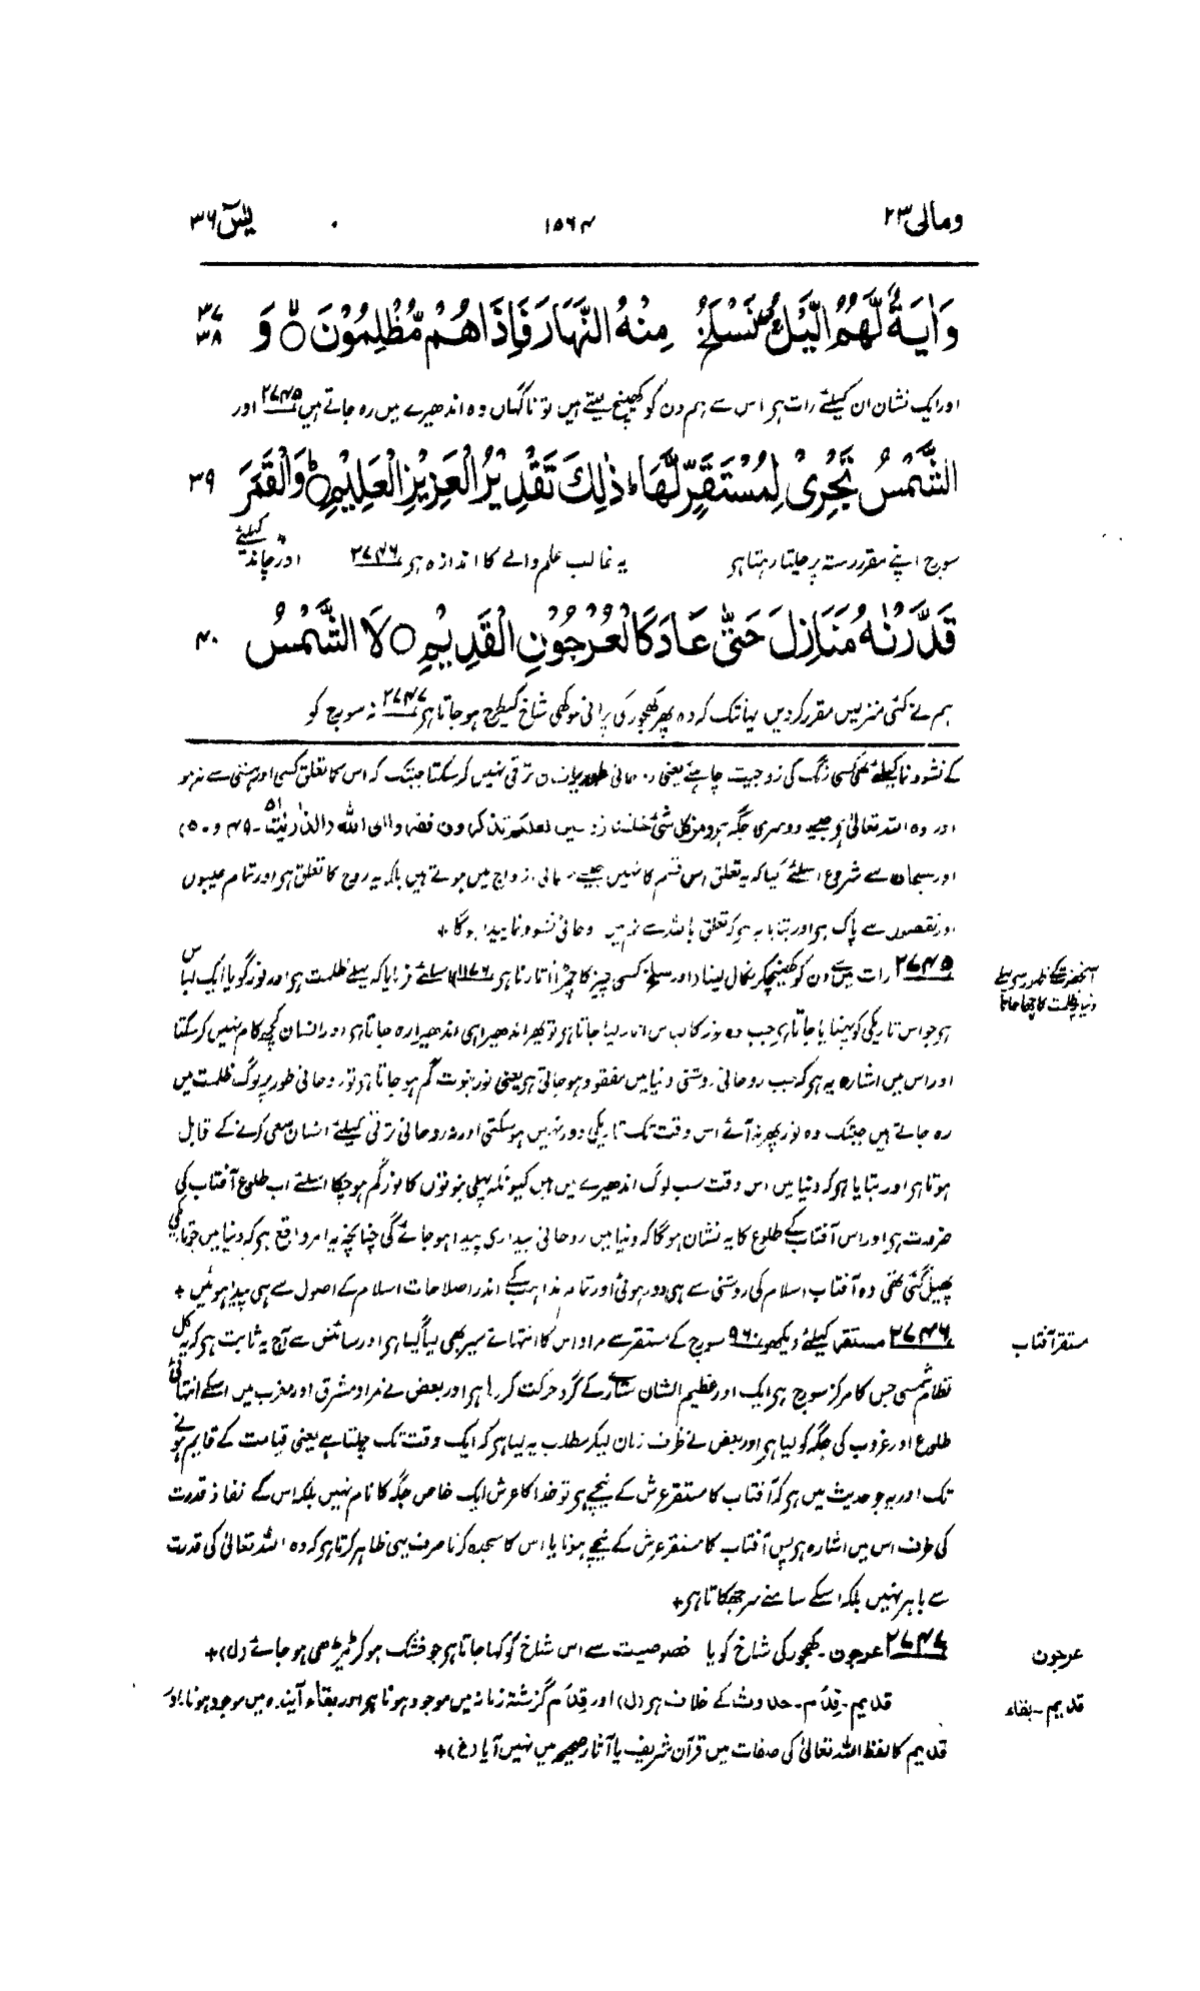 ومالی ۲۳
۱۵۶۴
یٰسٓ ۳۶
وَاٰيَةٌ لَّهُمُ الَّيْلُ ۖ نَسْلَخُ مِنْهُ النَّهَارَ فَاِذَا هُمْ مُّظْلِمُوْنَ ۙ وَ
۳۷
۳۸
اور ایک نشان ان کیلئے رات ہر اس سے ہم دن کو کھینچ لیتے ہیں تو ناگہاں وہ اندھیرے میں رہ جاتے ہیں ۲۷۴۵ اور
الشَّمْسُ تَجْرِىْ لِمُسْتَقَرٍّ لَّهَا ؕ ذٰلِكَ تَقْدِيْرُ الْعَزِيْزِ الْعَلِيْمِ ؕ وَالْقَمَرَ
۳۹
سورج اپنے مقرر رستہ پر چلتا رہتا ہر یہ غالب علم والے کا اندازہ ہر ۲۷۴۶ اور چاند کیلئے
قَدَّرْنٰهُ مَنَازِلَ حَتّٰى عَادَ كَالْعُرْجُوْنِ الْقَدِيْمِ ○ لَا الشَّمْسُ
۴۰
ہم نے کئی منزلیں مقرر کر دیں یہانتک کہ وہ پھر کھجور کی پرانی سوکھی شاخ کیطرح ہو جاتا ہر ۲۷۴۷ نہ سورج کو
کے نشو و نما کیلئے بھی کسی رنگ کی زوجیت چاہئے یعنی روحانی طور پر انسان ترقی نہیں کر سکتا جبتک کہ اس کا تعلق کسی اور ہستی سے نہ ہو
اور وہ اللہ تعالیٰ ہر جیسے دوسری جگہ ہر ومن کل شیء خلقنا زوجین لعلکم تذکرون ففروا الی اللہ والذٰریٰت ۵۱۔ ۴۹ و ۵۰)
اور سبحان سے شروع اسلئے کیا کہ یہ تعلق اس قسم کا نہیں جیسے جسمانی ازواج میں ہوتے ہیں بلکہ یہ روح کا تعلق ہر اور تمام عیبوں
اور نقصوں سے پاک ہر اور بتایا ہر کہ تعلق باللہ سے تمہیں روحانی نشو و نما پیدا ہوگا +
۲۷۴۵ رات میں سے دن کو کھینچ کر نکال لینا دا اور سلخ کسی چیز کا چمڑا اتارنا ہر ۱۱۷۶ اسلئے فرمایا کہ پہلے ظلمت ہر اور نور گویا ایک لباس
ہر جو اس تاریکی کو پہنایا جاتا ہر جب وہ نور کا لباس اتار لیا جاتا ہر تو پھر اندھیرا ہی اندھیرا رہ جاتا ہر اور انسان کچھ کام نہیں کر سکتا
اور اس میں اشارہ یہ ہر کہ جب روحانی روشنی دنیا میں مفقود ہو جاتی ہر یعنی نور نبوت گم ہو جاتا ہر تو روحانی طور پر لوگ ظلمت میں
رہ جاتے ہیں جبتک وہ نور پھر نہ آئے اس وقت تک تاریکی دور نہیں ہو سکتی اور نہ روحانی ترقی کیلئے انسان سعی کرنے کے قابل
ہوتا ہر اور بتایا ہر کہ دنیا میں اس وقت سب لوگ اندھیرے میں ہیں کیونکہ پہلی نبوتوں کا نور گم ہو چکا اسلئے اب طلوع آفتاب کی
ضرورت ہر اور اس آفتاب کے طلوع کا یہ نشان ہوگا کہ دنیا میں روحانی بیداری پیدا ہو جائے گی چنانچہ یہ امر واقع ہر کہ دنیا میں جو تاریکی
پھیل گئی تھی وہ آفتاب اسلام کی روشنی سے ہی دور ہوئی اور تمام مذاہب کے اندر اصلاحات اسلام کے اصول سے ہی پیدا ہوئیں +
۲۷۴۶ مستقر کیلئے دیکھو ۹۶۰ سورج کے مستقر سے مراد اس کا انتہائے سیر بھی لیا گیا ہر اور سائنس سے آج یہ ثابت ہر کہ یہ کل
نظام شمسی جس کا مرکز سورج ہر ایک اور عظیم الشان ستارے کے گرد حرکت کر رہا ہر اور بعض نے مراد مشرق اور مغرب میں اسکے انتہائی
طلوع اور غروب کی جگہ کو لیا ہر اور بعض نے ظرف زمان لیکر مطلب یہ لیا ہر کہ ایک وقت تک چلتا ہے یعنی قیامت کے قایم ہونے
تک اور یہ جو حدیث میں ہر کہ آفتاب کا مستقر عرش کے نیچے ہر تو خدا کا عرش ایک خاص جگہ کا نام نہیں بلکہ اس کے نفاذ قدرت
کی طرف اس میں اشارہ ہر پس آفتاب کا مستقر عرش کے نیچے ہونا یا اس کا سجدہ کرنا صرف یہی ظاہر کرتا ہر کہ وہ اللہ تعالیٰ کی قدرت
سے باہر نہیں بلکہ اسکے سامنے سر جھکاتا ہر +
۲۷۴۷ عرجون۔ کھجور کی شاخ کو یا خصوصیت سے اس شاخ کو کہا جاتا ہر جو خشک ہو کر ٹیڑھی ہو جائے (ل) +
قدیم۔ قِدَم۔ حدوث کے خلاف ہر (ل) اور قِدَم گزشتہ زمانہ میں موجود ہونا ہر اور بقاء آیندہ میں موجود ہونا اور
قدیم کا لفظ اللہ تعالیٰ کی صفات میں قرآن شریف یا آثار صحیحہ میں نہیں آیا (غ) +
آنحضرت کے ظہور سے پہلے
دنیا پر ظلمت کا چھا جانا
مستقر آفتاب
عرجون
قدیم۔ بقاء